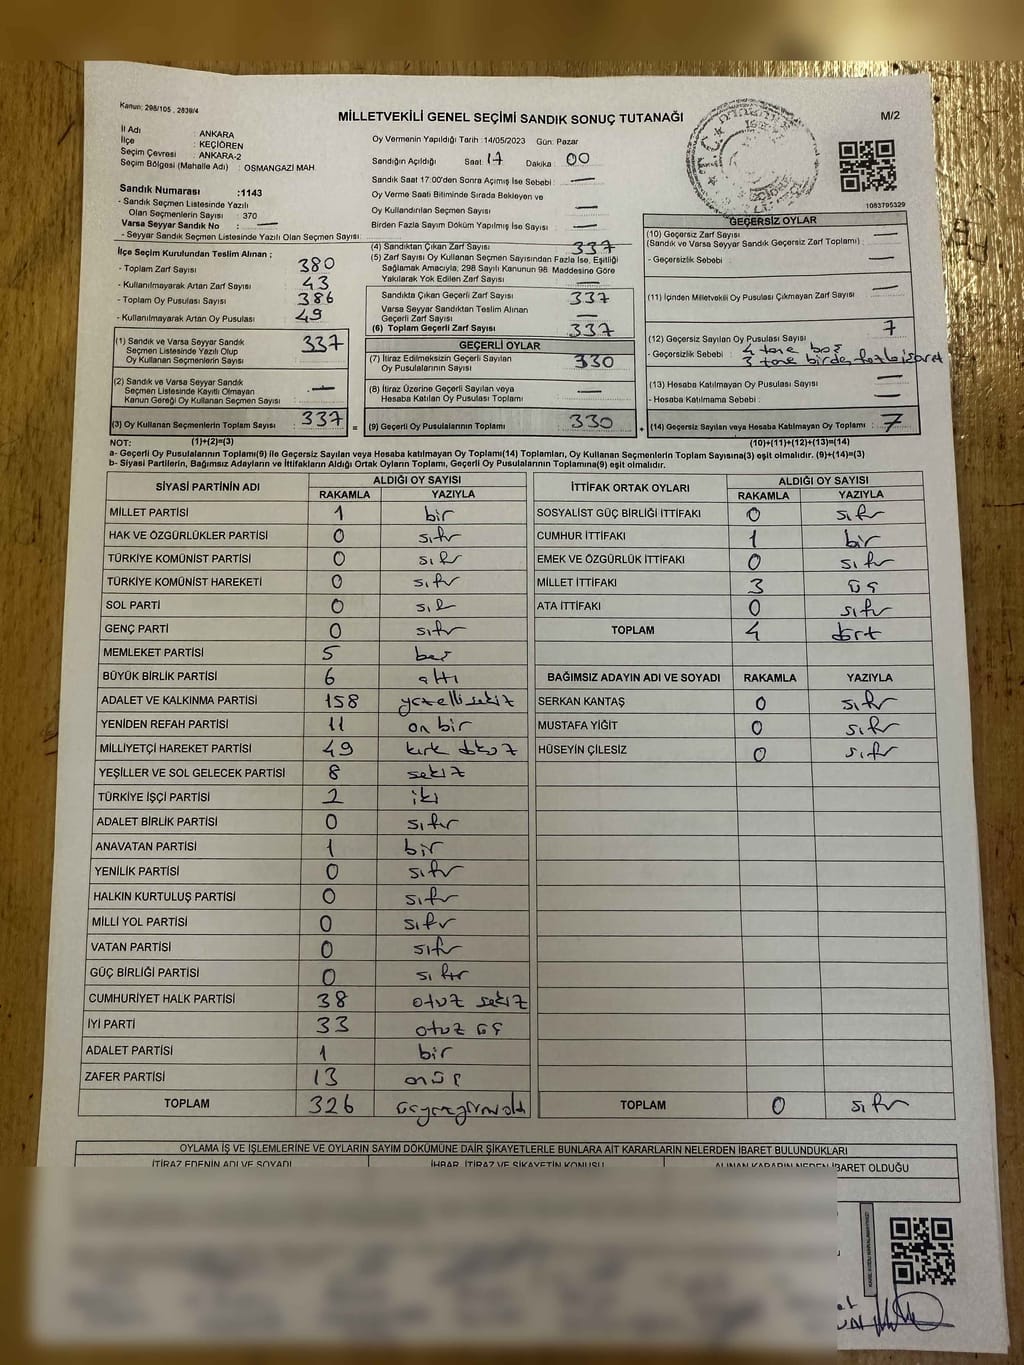 Kanun: 298/105 , 2839/4
MİLLETVEKİLİ GENEL SEÇİMİ SANDIK SONUÇ TUTANAĞI
M/2
İl Adı : ANKARA
İlçe : KEÇİÖREN
Seçim Çevresi : ANKARA-2
Seçim Bölgesi (Mahalle Adı) : OSMANGAZİ MAH.
Sandık Numarası :1143
- Sandık Seçmen Listesinde Yazılı
Olan Seçmenlerin Sayısı : 370
Varsa Seyyar Sandık No : —
- Seyyar Sandık Seçmen Listesinde Yazılı Olan Seçmen Sayısı:
Oy Vermenin Yapıldığı Tarih :14/05/2023 Gün: Pazar
Sandığın Açıldığı Saat: 17 Dakika : 00
Sandık Saat 17:00'den Sonra Açımış İse Sebebi : —
Oy Verme Saati Bitiminde Sırada Bekleyen ve
Oy Kullandırılan Seçmen Sayısı : —
Birden Fazla Sayım Döküm Yapılmış İse Sayısı : —
1083795329
İlçe Seçim Kurulundan Teslim Alınan ;
- Toplam Zarf Sayısı : 380
- Kullanılmayarak Artan Zarf Sayısı : 43
- Toplam Oy Pusulası Sayısı : 386
- Kullanılmayarak Artan Oy Pusulası : 49
(1) Sandık ve Varsa Seyyar Sandık
Seçmen Listesinde Yazılı Olup
Oy Kullanan Seçmenlerin Sayısı : 337
(2) Sandık ve Varsa Seyyar Sandık
Seçmen Listesinde Kayıtlı Olmayan
Kanun Gereği Oy Kullanan Seçmen Sayısı : —
(3) Oy Kullanan Seçmenlerin Toplam Sayısı : 337
(4) Sandıktan Çıkan Zarf Sayısı : 337
(5) Zarf Sayısı Oy Kullanan Seçmen Sayısından Fazla İse, Eşitliği
Sağlamak Amacıyla, 298 Sayılı Kanunun 98. Maddesine Göre
Yakılarak Yok Edilen Zarf Sayısı : —
Sandıkta Çıkan Geçerli Zarf Sayısı : 337
Varsa Seyyar Sandıktan Teslim Alınan
Geçerli Zarf Sayısı : —
(6) Toplam Geçerli Zarf Sayısı : 337
GEÇERLİ OYLAR
(7) İtiraz Edilmeksizin Geçerli Sayılan
Oy Pusulalarının Sayısı : 330
(8) İtiraz Üzerine Geçerli Sayılan veya
Hesaba Katılan Oy Pusulası Toplamı : —
= (9) Geçerli Oy Pusulalarının Toplamı : 330 +
GEÇERSİZ OYLAR
(10) Geçersiz Zarf Sayısı : —
(Sandık ve Varsa Seyyar Sandık Geçersiz Zarf Toplamı)
- Geçersizlik Sebebi : —
(11) İçinden Milletvekili Oy Pusulası Çıkmayan Zarf Sayısı : —
(12) Geçersiz Sayılan Oy Pusulası Sayısı : 7
- Geçersizlik Sebebi : 4 tane boş
3 tane birden fazla işaret
(13) Hesaba Katılmayan Oy Pusulası Sayısı : —
- Hesaba Katılmama Sebebi : —
(14) Geçersiz Sayılan veya Hesaba Katılmayan Oy Toplamı : 7
NOT: (1)+(2)=(3) (10)+(11)+(12)+(13)=(14)
a- Geçerli Oy Pusulalarının Toplamı(9) ile Geçersiz Sayılan veya Hesaba katılmayan Oy Toplamı(14) Toplamları, Oy Kullanan Seçmenlerin Toplam Sayısına(3) eşit olmalıdır. (9)+(14)=(3)
b- Siyasi Partilerin, Bağımsız Adayların ve İttifakların Aldığı Ortak Oyların Toplamı, Geçerli Oy Pusulalarının Toplamına(9) eşit olmalıdır.
SİYASİ PARTİNİN ADI ALDIĞI OY SAYISI
RAKAMLA YAZIYLA
MİLLET PARTİSİ 1 bir
HAK VE ÖZGÜRLÜKLER PARTİSİ 0 sıfır
TÜRKİYE KOMÜNİST PARTİSİ 0 sıfır
TÜRKİYE KOMÜNİST HAREKETİ 0 sıfır
SOL PARTİ 0 sıfır
GENÇ PARTİ 0 sıfır
MEMLEKET PARTİSİ 5 beş
BÜYÜK BİRLİK PARTİSİ 6 altı
ADALET VE KALKINMA PARTİSİ 158 yüzellisekiz
YENİDEN REFAH PARTİSİ 11 on bir
MİLLİYETÇİ HAREKET PARTİSİ 49 kırk dokuz
YEŞİLLER VE SOL GELECEK PARTİSİ 8 sekiz
TÜRKİYE İŞÇİ PARTİSİ 2 iki
ADALET BİRLİK PARTİSİ 0 sıfır
ANAVATAN PARTİSİ 1 bir
YENİLİK PARTİSİ 0 sıfır
HALKIN KURTULUŞ PARTİSİ 0 sıfır
MİLLİ YOL PARTİSİ 0 sıfır
VATAN PARTİSİ 0 sıfır
GÜÇ BİRLİĞİ PARTİSİ 0 sıfır
CUMHURİYET HALK PARTİSİ 38 otuz sekiz
İYİ PARTİ 33 otuz üç
ADALET PARTİSİ 1 bir
ZAFER PARTİSİ 13 onüç
TOPLAM 326 üçyüzyirmialtı
İTTİFAK ORTAK OYLARI ALDIĞI OY SAYISI
RAKAMLA YAZIYLA
SOSYALİST GÜÇ BİRLİĞİ İTTİFAKI 0 sıfır
CUMHUR İTTİFAKI 1 bir
EMEK VE ÖZGÜRLÜK İTTİFAKI 0 sıfır
MİLLET İTTİFAKI 3 üç
ATA İTTİFAKI 0 sıfır
TOPLAM 4 dört
BAĞIMSIZ ADAYIN ADI VE SOYADI RAKAMLA YAZIYLA
SERKAN KANTAŞ 0 sıfır
MUSTAFA YİĞİT 0 sıfır
HÜSEYİN ÇİLESİZ 0 sıfır
TOPLAM 0 sıfır
OYLAMA İŞ VE İŞLEMLERİNE VE OYLARIN SAYIM DÖKÜMÜNE DAİR ŞİKAYETLERLE BUNLARA AİT KARARLARIN NELERDEN İBARET BULUNDUKLARI
İTİRAZ EDENİN ADI VE SOYADI İHBAR, İTİRAZ VE ŞİKAYETİN KONUSU ALINAN KARARIN NEDEN İBARET OLDUĞU